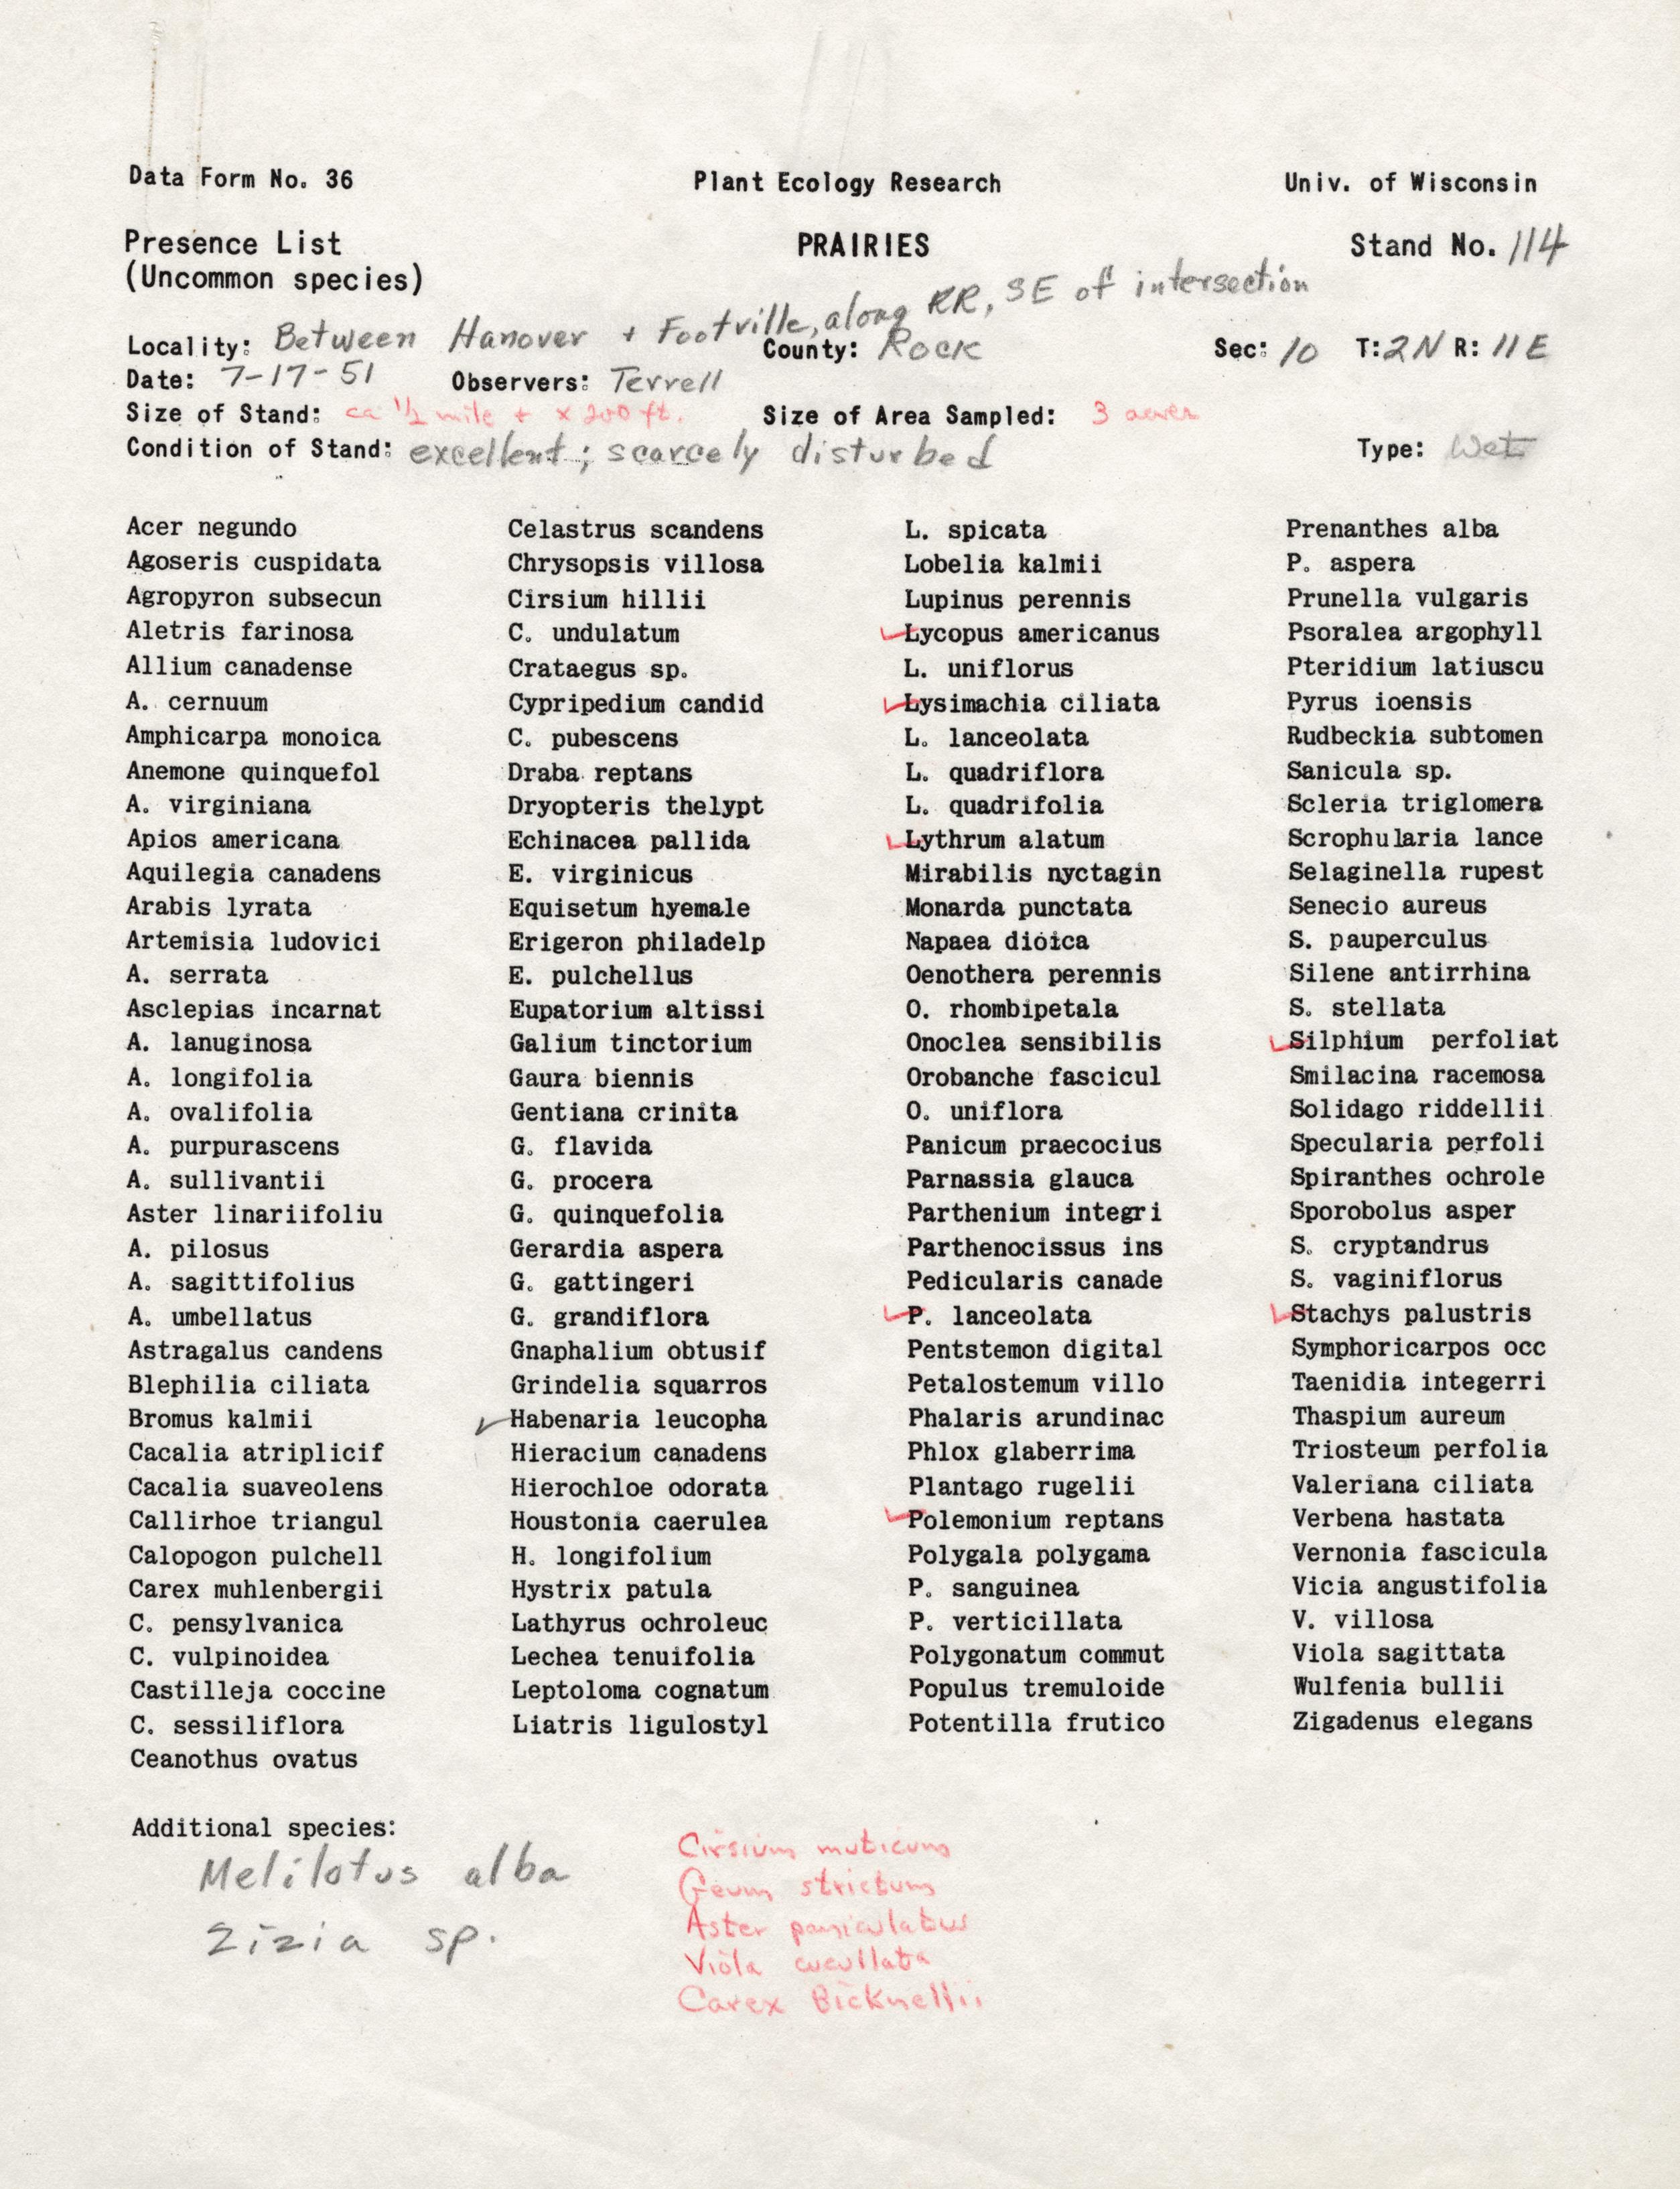 Data Form No. 36 Plant Ecology Research Univ. of Wisconsin
Presence List PRAIRIES Stand No. 114
(Uncommon species)
Locality: Between Hanover + Footville, along RR, SE of intersection
County: Rock Sec: 10 T: 2N R: 11E
Date: 7-17-51 Observers: Terrell
Size of Stand: ca 1/2 mile + x 200 ft. Size of Area Sampled: 3 acres
Condition of Stand: excellent; scarcely disturbed Type: Wet
Acer negundo
Agoseris cuspidata
Agropyron subsecun
Aletris farinosa
Allium canadense
A. cernuum
Amphicarpa monoica
Anemone quinquefol
A. virginiana
Apios americana
Aquilegia canadens
Arabis lyrata
Artemisia ludovici
A. serrata
Asclepias incarnat
A. lanuginosa
A. longifolia
A. ovalifolia
A. purpurascens
A. sullivantii
Aster linariifoliu
A. pilosus
A. sagittifolius
A. umbellatus
Astragalus candens
Blephilia ciliata
Bromus kalmii
Cacalia atriplicif
Cacalia suaveolens
Callirhoe triangul
Calopogon pulchell
Carex muhlenbergii
C. pensylvanica
C. vulpinoidea
Castilleja coccine
C. sessiliflora
Ceanothus ovatus
Celastrus scandens
Chrysopsis villosa
Cirsium hillii
C. undulatum
Crataegus sp.
Cypripedium candid
C. pubescens
Draba reptans
Dryopteris thelypt
Echinacea pallida
E. virginicus
Equisetum hyemale
Erigeron philadelp
E. pulchellus
Eupatorium altissi
Galium tinctorium
Gaura biennis
Gentiana crinita
G. flavida
G. procera
G. quinquefolia
Gerardia aspera
G. gattingeri
G. grandiflora
Gnaphalium obtusif
Grindelia squarros
✓ Habenaria leucopha
Hieracium canadens
Hierochloe odorata
Houstonia caerulea
H. longifolium
Hystrix patula
Lathyrus ochroleuc
Lechea tenuifolia
Leptoloma cognatum
Liatris ligulostyl
L. spicata
Lobelia kalmii
Lupinus perennis
✓ Lycopus americanus
L. uniflorus
✓ Lysimachia ciliata
L. lanceolata
L. quadriflora
L. quadrifolia
✓ Lythrum alatum
Mirabilis nyctagin
Monarda punctata
Napaea dioica
Oenothera perennis
O. rhombipetala
Onoclea sensibilis
Orobanche fascicul
O. uniflora
Panicum praecocius
Parnassia glauca
Parthenium integri
Parthenocissus ins
Pedicularis canade
✓ P. lanceolata
Pentstemon digital
Petalostemum villo
Phalaris arundinac
Phlox glaberrima
Plantago rugelii
✓ Polemonium reptans
Polygala polygama
P. sanguinea
P. verticillata
Polygonatum commut
Populus tremuloide
Potentilla frutico
Prenanthes alba
P. aspera
Prunella vulgaris
Psoralea argophyll
Pteridium latiuscu
Pyrus ioensis
Rudbeckia subtomen
Sanicula sp.
Scleria triglomera
Scrophularia lance
Selaginella rupest
Senecio aureus
S. pauperculus
Silene antirrhina
S. stellata
✓ Silphium perfoliat
Smilacina racemosa
Solidago riddellii
Specularia perfoli
Spiranthes ochrole
Sporobolus asper
S. cryptandrus
S. vaginiflorus
✓ Stachys palustris
Symphoricarpos occ
Taenidia integerri
Thaspium aureum
Triosteum perfolia
Valeriana ciliata
Verbena hastata
Vernonia fascicula
Vicia angustifolia
V. villosa
Viola sagittata
Wulfenia bullii
Zigadenus elegans
Additional species:
Melilotus alba
Zizia sp.
Cirsium muticum
Geum strictum
Aster paniculatus
Viola cucullata
Carex Bicknellii